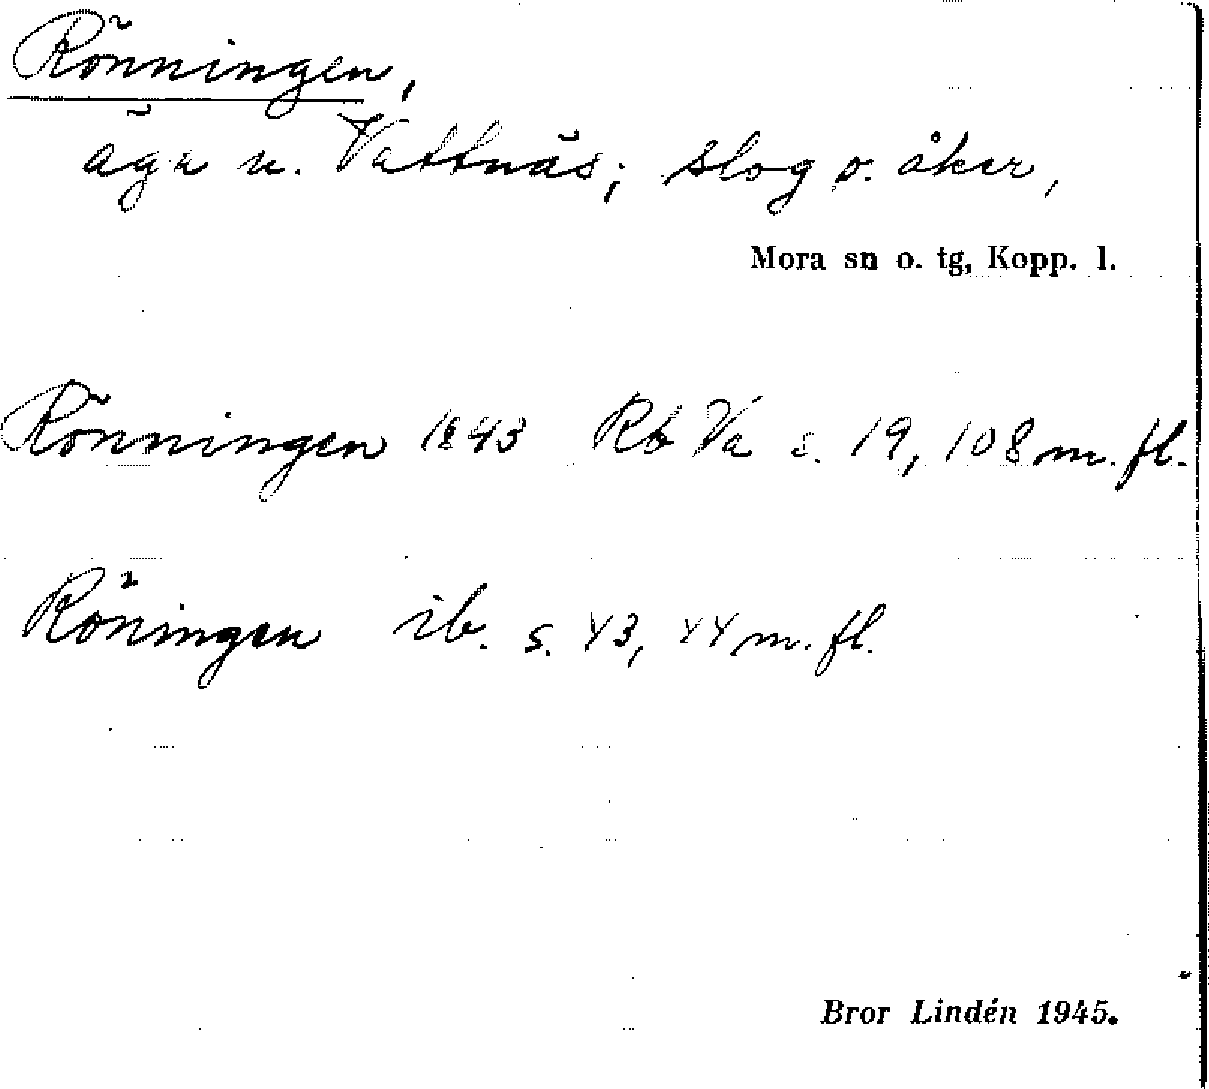 Rönningen,
äga u. Vattnäs; slog o. åker,
Mora sn o. tg, Kopp. l.
Rönningen 1843 Rb Va s. 19, 108 m. fl.
Röningen ib. s. 43, 44 m. fl.
Bror Lindén 1945.